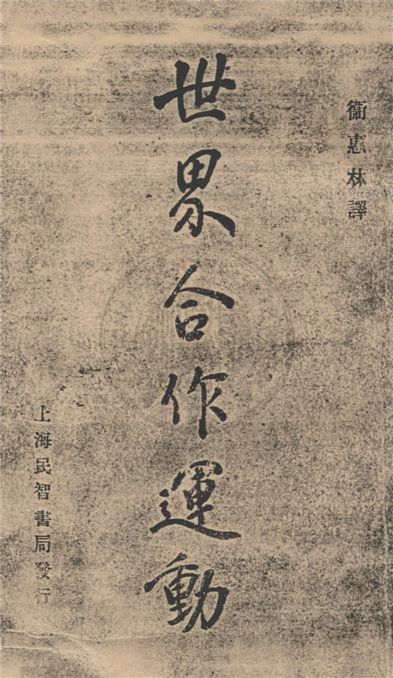 衞惠林譯
世界合作運動
上海民智書局發行